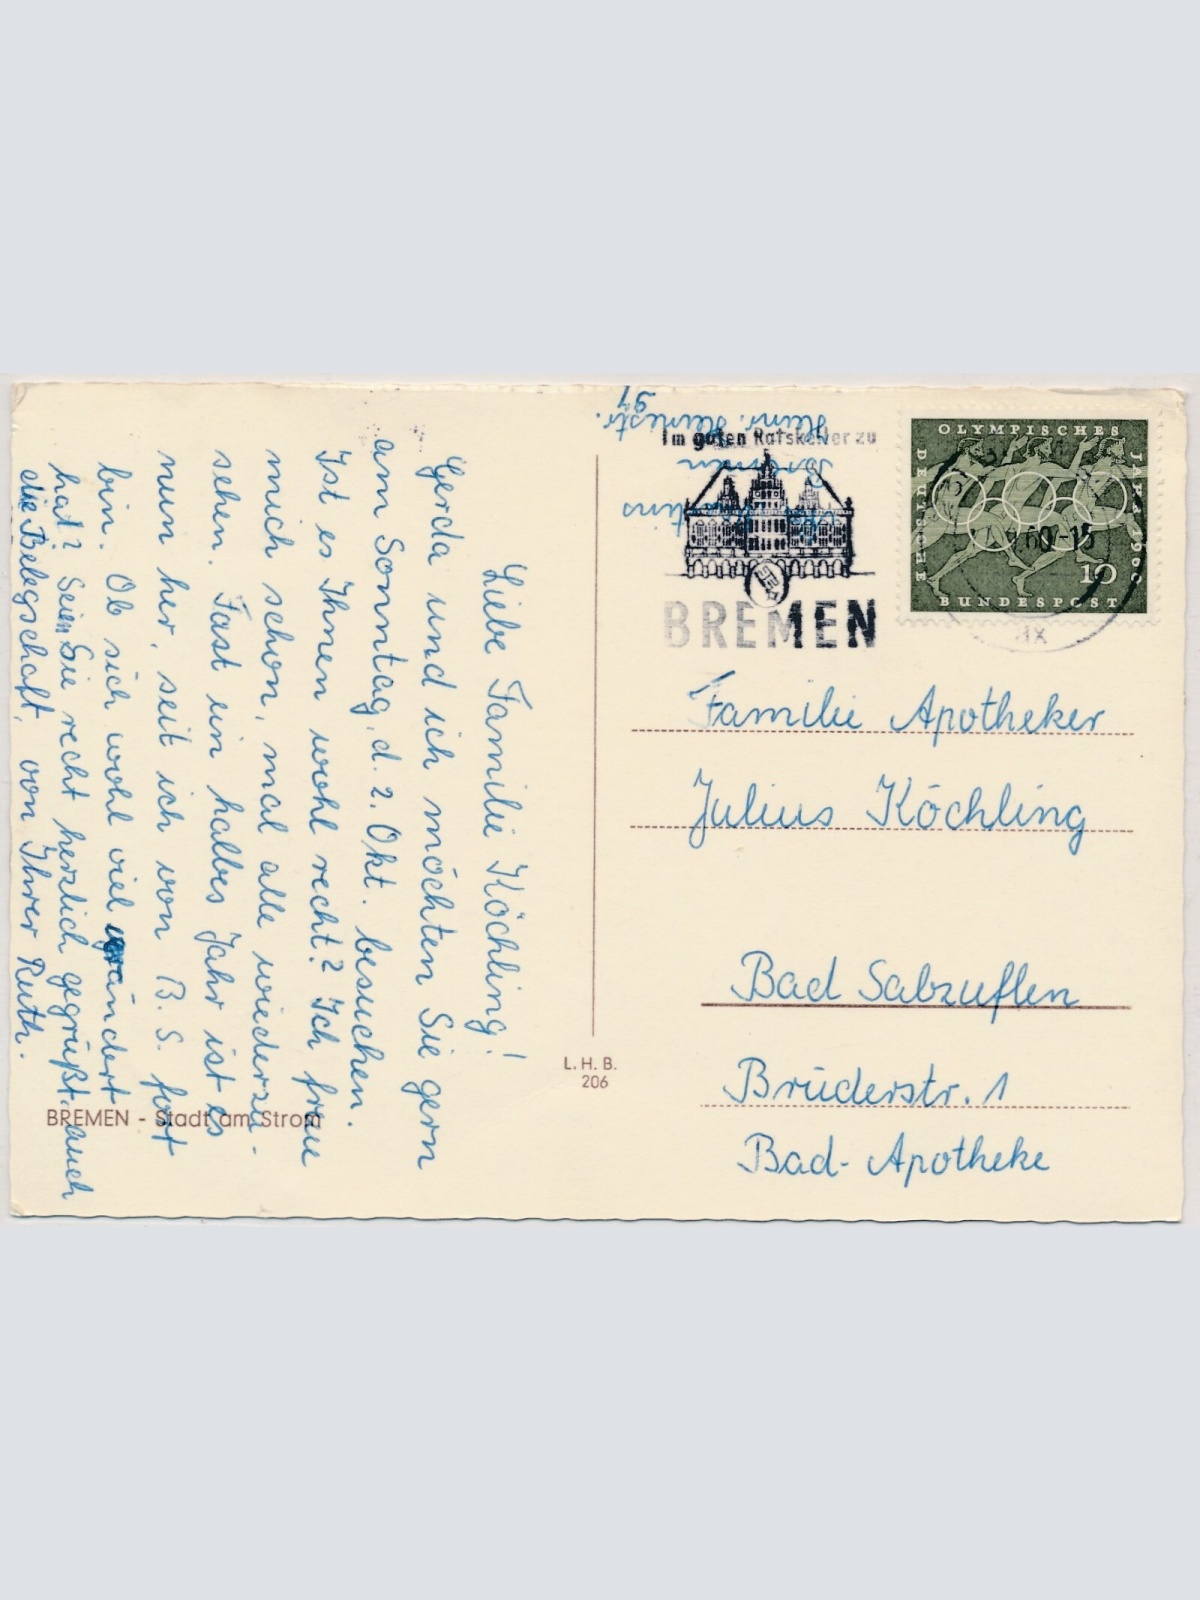 Liebe Familie Köchling!
Gerda und ich möchten Sie gern
am Sonntag, d. 2. Okt. besuchen.
Ist es Ihnen wohl recht? Ich freu
mich schon, mal alle wiederzu-
sehen. Fast ein halbes Jahr ist es
nun her, seit ich von B. S. fort
bin. Ob sich wohl viel verändert
hat? Seien Sie recht herzlich gegrüßt, auch
die Belegschaft, von Ihrer Ruth.
BREMEN - Stadt am Strom
L. H. B.
206
Bremen
Heinr. Heinestr.
97
Im guten Ratskeller zu
BREMEN
OLYMPISCHES
JAHR 1960
DEUTSCHE
BUNDESPOST
10
60-15
Familie Apotheker
Julius Köchling
Bad Salzuflen
Brüderstr. 1
Bad-Apotheke